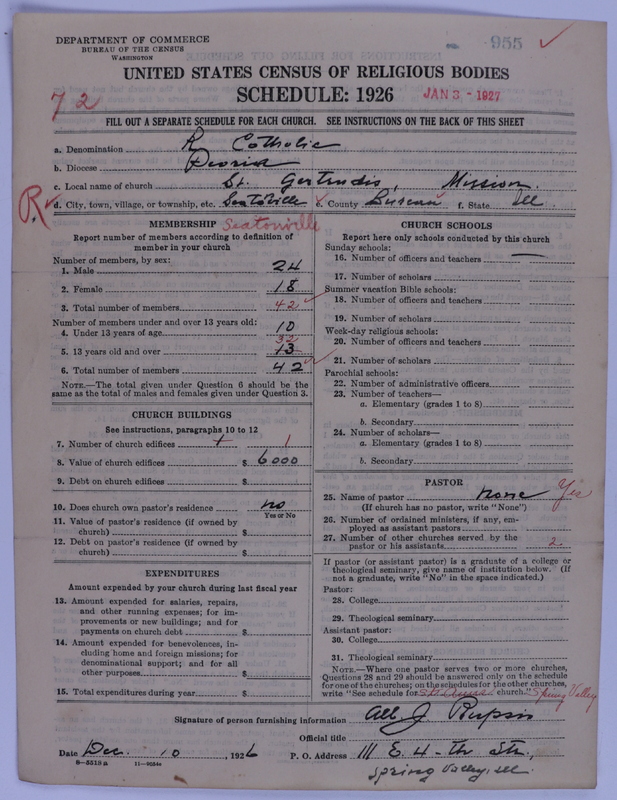 DEPARTMENT OF COMMERCE
BUREAU OF THE CENSUS
WASHINGTON
955
UNITED STATES CENSUS OF RELIGIOUS BODIES
SCHEDULE: 1926
JAN 3 - 1927
72
FILL OUT A SEPARATE SCHEDULE FOR EACH CHURCH. SEE INSTRUCTIONS ON THE BACK OF THIS SHEET
a. Denomination R Catholic
b. Diocese Peoria
c. Local name of church St. Gertrudis, Mission.
R. d. City, town, village, or township, etc. Seatonville e. County Bureau f. State Ill
MEMBERSHIP Seatonville
Report number of members according to definition of
member in your church
Number of members, by sex:
1. Male 24
2. Female 18
3. Total number of members 42
Number of members under and over 13 years old:
4. Under 13 years of age 10
32
5. 13 years old and over 13
6. Total number of members 42
NOTE.—The total given under Question 6 should be the
same as the total of males and females given under Question 3.
CHURCH BUILDINGS
See instructions, paragraphs 10 to 12
7. Number of church edifices 1
8. Value of church edifices $ 6000
9. Debt on church edifices $
10. Does church own pastor's residence no
Yes or No
11. Value of pastor's residence (if owned by
church) $
12. Debt on pastor's residence (if owned by
church) $
EXPENDITURES
Amount expended by your church during last fiscal year
13. Amount expended for salaries, repairs,
and other running expenses; for im-
provements or new buildings; and for
payments on church debt $
14. Amount expended for benevolences, in-
cluding home and foreign missions; for
denominational support; and for all
other purposes $
15. Total expenditures during year $
CHURCH SCHOOLS
Report here only schools conducted by this church
Sunday schools:
16. Number of officers and teachers
17. Number of scholars
Summer vacation Bible schools:
18. Number of officers and teachers
19. Number of scholars
Week-day religious schools:
20. Number of officers and teachers
21. Number of scholars
Parochial schools:
22. Number of administrative officers
23. Number of teachers—
a. Elementary (grades 1 to 8)
b. Secondary
24. Number of scholars—
a. Elementary (grades 1 to 8)
b. Secondary
PASTOR
25. Name of pastor none Yes
(If church has no pastor, write "None")
26. Number of ordained ministers, if any, em-
ployed as assistant pastors
27. Number of other churches served by the
pastor or his assistants 2
If pastor (or assistant pastor) is a graduate of a college or
theological seminary, give name of institution below. (If
not a graduate, write "No" in the space indicated.)
Pastor:
28. College
29. Theological seminary
Assistant pastor:
30. College
31. Theological seminary
NOTE.—Where one pastor serves two or more churches,
Questions 28 and 29 should be answered only on the schedule
for one of the churches; on the schedules for the other churches,
write "See schedule for church." Spring Valley
Signature of person furnishing information
Official title
Date Dec. 10, 1926 P. O. Address 111 E. 4-th Str.,
8-5518a 11-9554c Spring Valley, Ill.